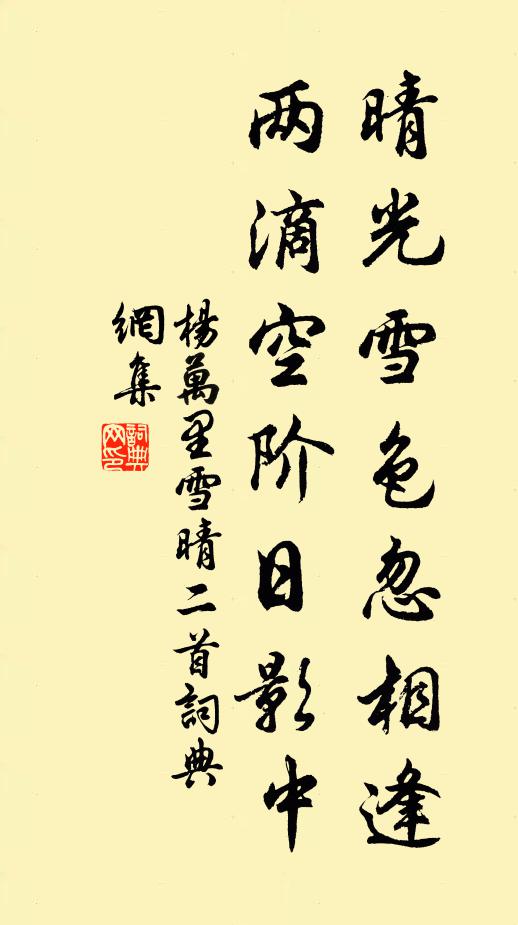 晴光雪色忽相逢
两滴空阶日影中
楊萬里雪晴二首詞典
網集
詞典
网印